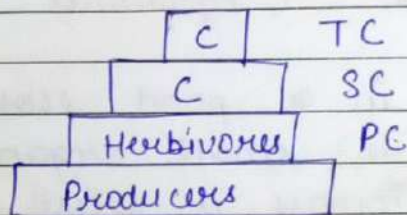 C TC
C SC
Herbivores PC
Producers